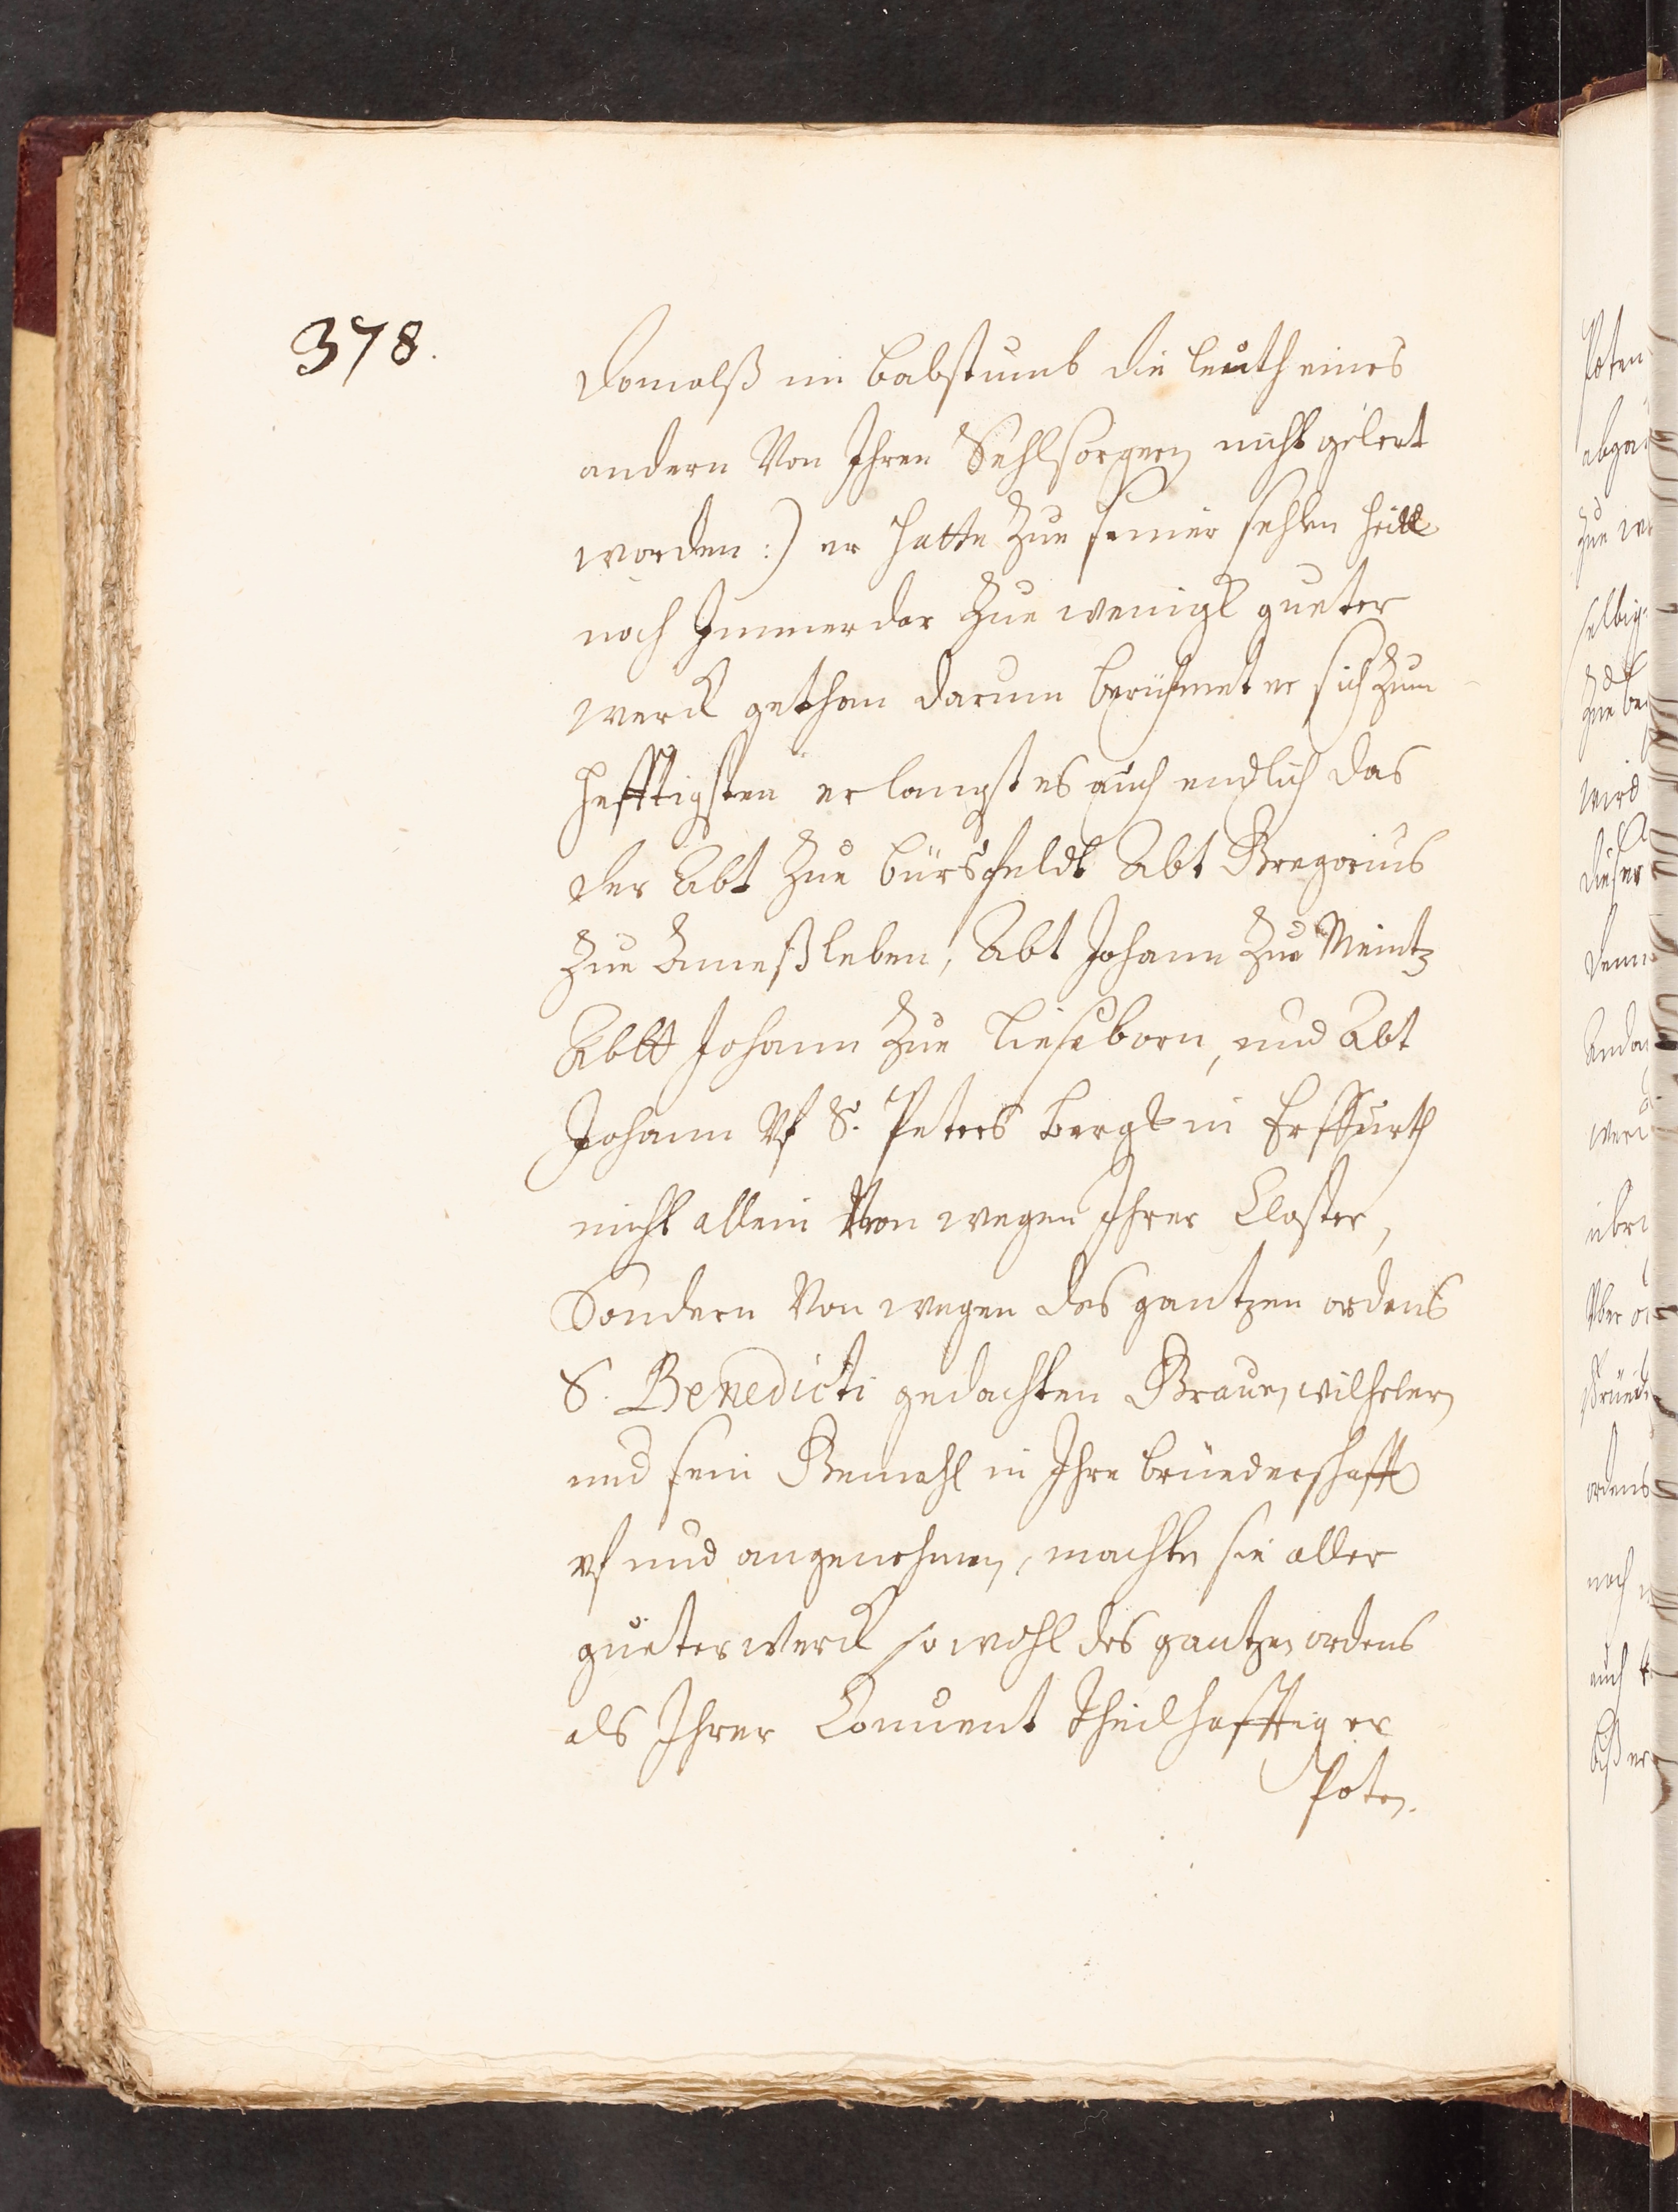 378.
domalß im babstumb die leuth eines
andern Von Ihren Sehlsorgern nicht gelert
worden:) er hatte Zue seiner sehlen heill
noch Immerdar Zue wenigk gueter
werck gethan darum berühmet er sich zum
hefftigsten erlangst es auch endlich das
der Abt Zue bürsfeldt Abt Gregorius
Zue Ameßleben, Abt Johann Zue Meintz
Abtt Johann Zue Lieseborn, und Abt
Johann Vf S. Peters bergk in Erffurth
nicht allein Von wegen Ihrer Closter,
Sondern Von wegen des gantzen ordens
S. Benedicti gedachten Graven wilhelm
und sein Gemahl in Ihre brüederschafft
vf und angenehmen, machten sie aller
gueter werck so wohl des gantzen ordens
als Ihrer Conuent theilhafftig er
Poten.
Poten
abga
zue
selbig
Zue be
wird
dieser
denn
werd
übri
Vber
ordens
noch
auch
biß er